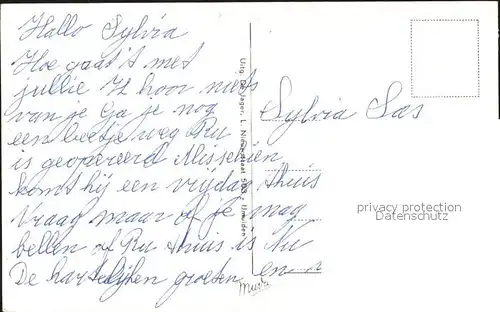 Hallo Sylvia
Hoe gaat't met
jullie Ik hoor niets
van je Ga je nog
een beetje weg Ru
is geopereerd Misschien
komt hij een vrijdag thuis
Vraag maar of je mag
bellen of Ru thuis is Nu
De hartelijken groeten en
Sylvia Sas
privacy protection
Datenschutz